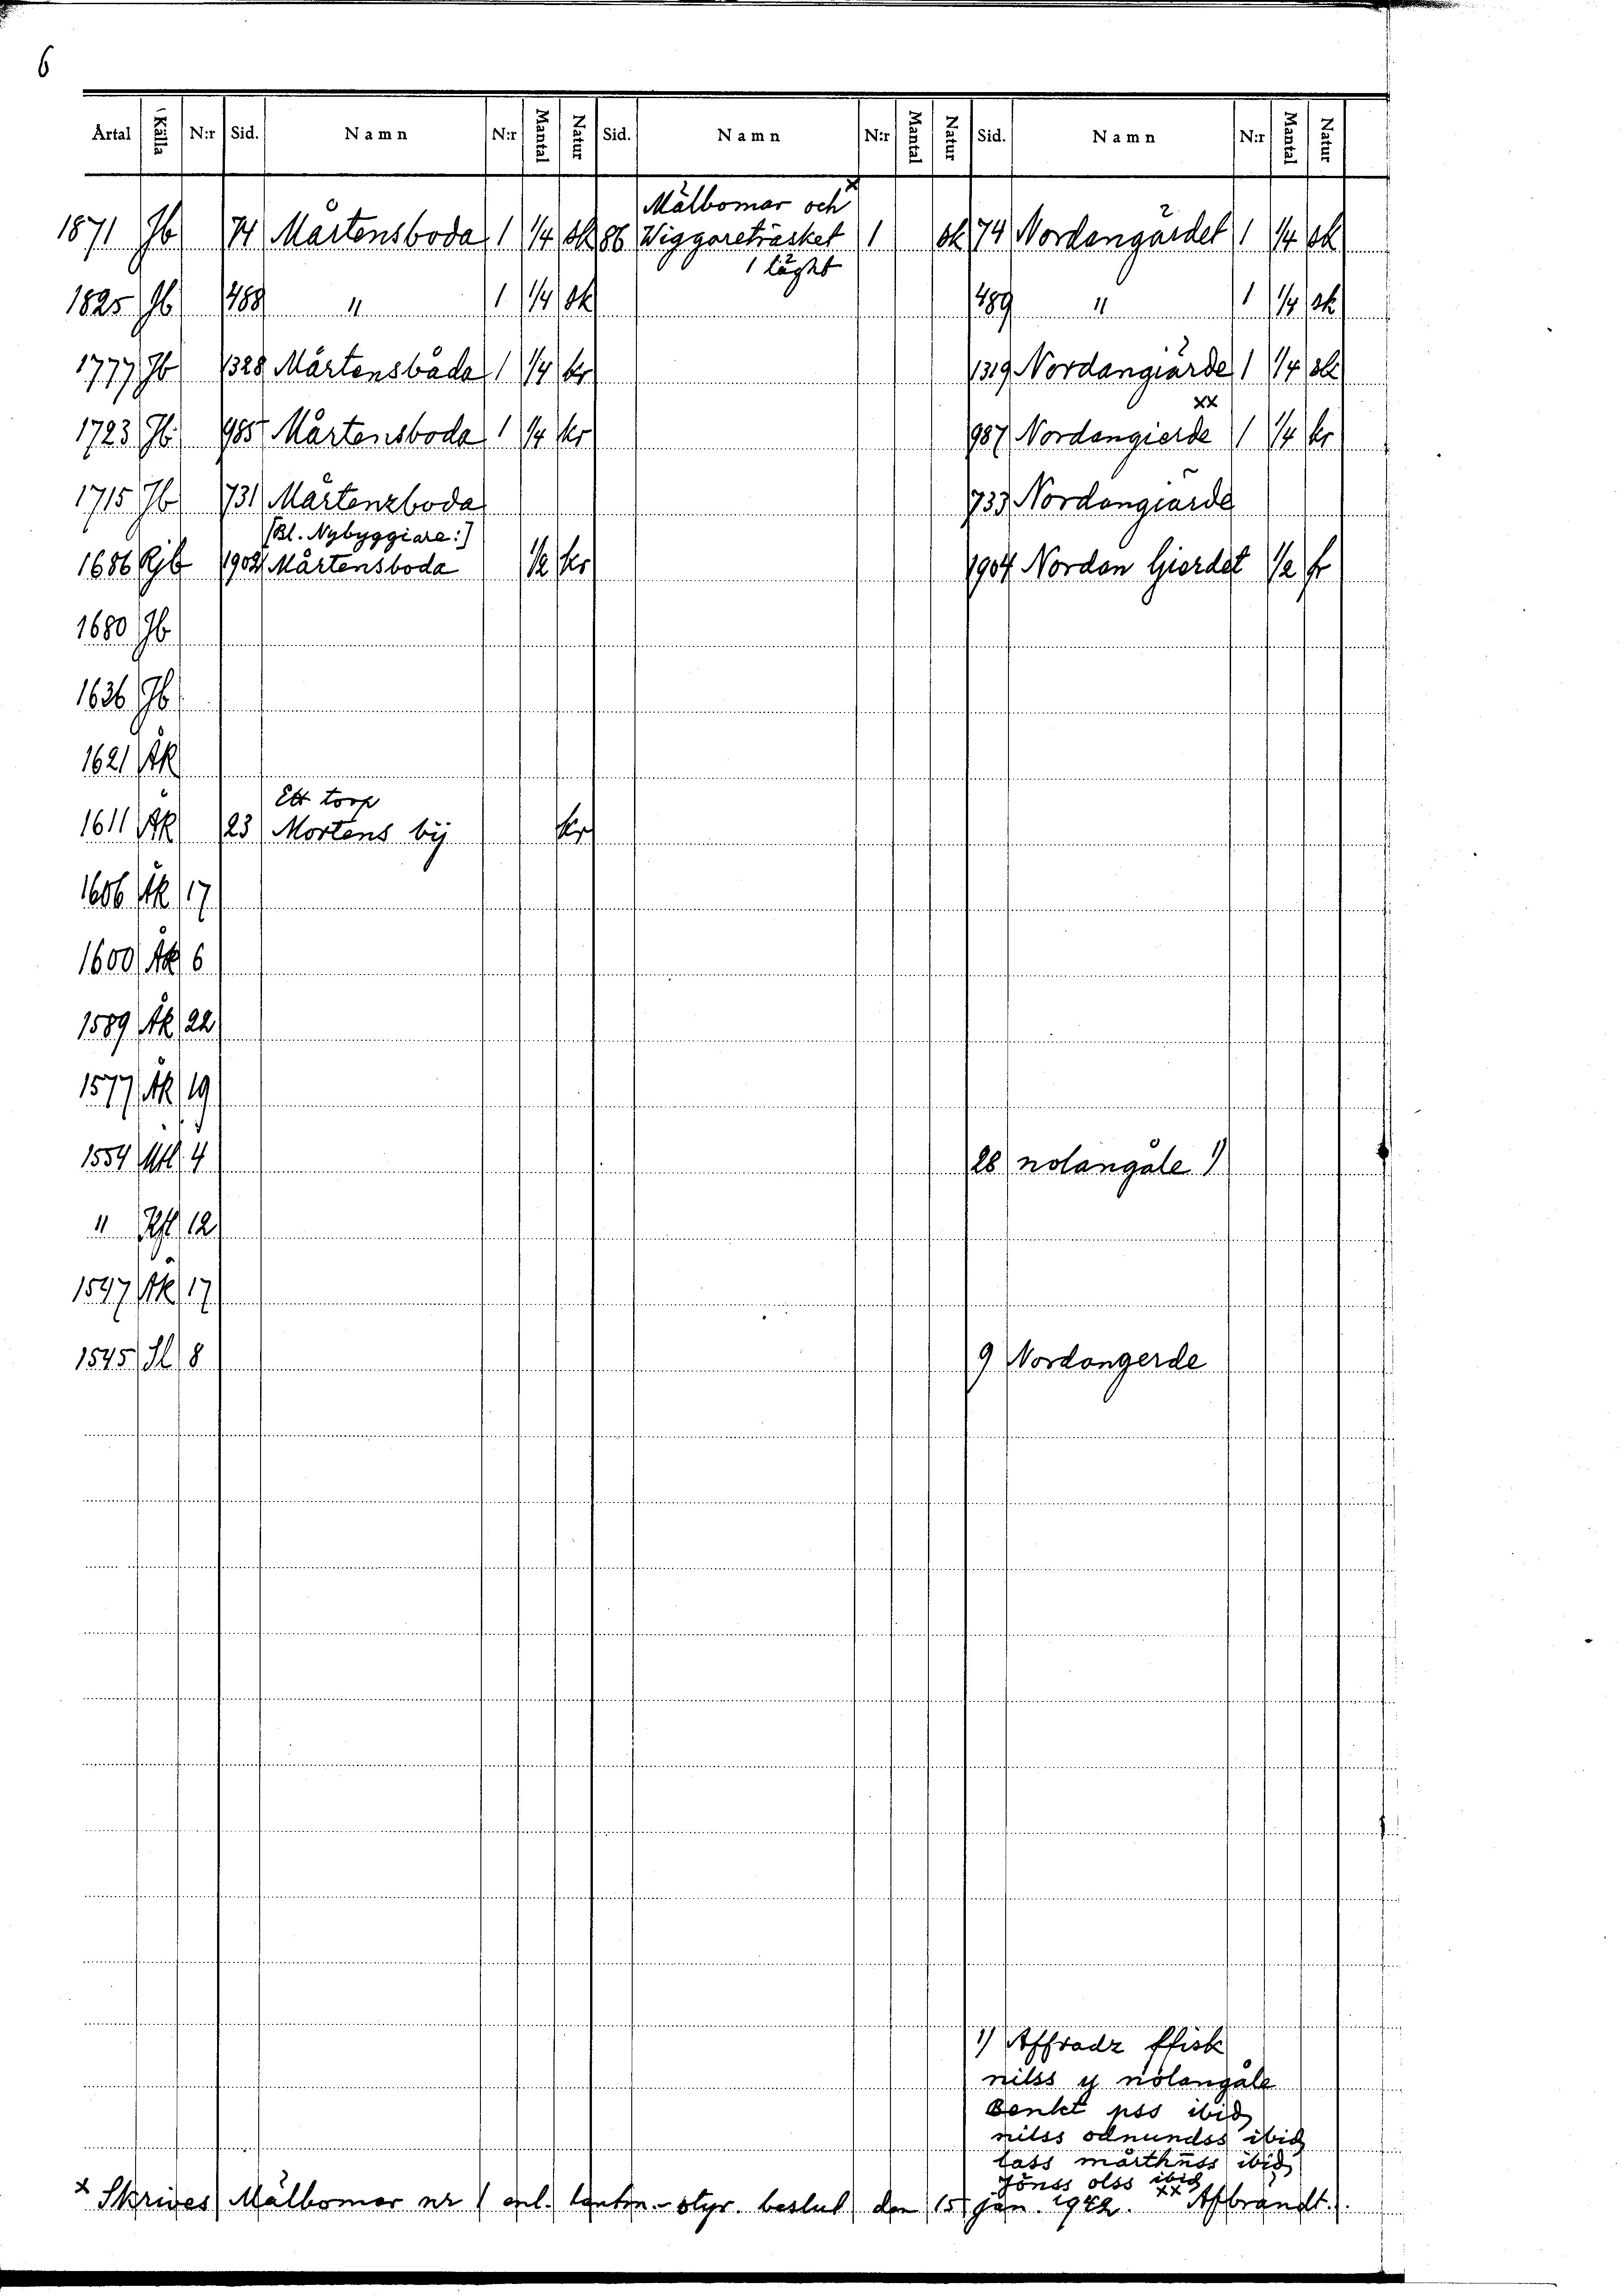 6
Årtal Källa N:r Sid. Namn N:r Mantal Natur Sid. Namn N:r Mantal Natur Sid. Namn N:r Mantal Natur
Mälbomar och x
1871 Jb 74 Mårtensboda 1 1/4 sk 86 Wiggareträsket 1 sk 74 Nordangärdet 1 1/4 sk
1 läght
1825 Jb 488 " 1 1/4 sk 489 " 1 1/4 sk
1777 Jb 1328 Mårtensbåda 1 1/4 kr 1319 Nordangiärde 1 1/4 sk
xx
1723 Jb 985 Mårtensboda 1 1/4 kr 987 Nordangierde 1 1/4 kr
1715 Jb 731 Mårtenzboda 733 Nordangiärde
[Bl. Nybyggiare:]
1686 Rjb 1902 Mårtensboda 1/2 kr 1904 Nordan Gierdet 1/2 fr
1680 Jb
1636 Jb
1621 ÅK
Ett torp
1611 ÅK 23 Mortens bij kr
1606 ÅK 17
1600 ÅK 6
1589 ÅK 22
1577 ÅK 19
1554 Mtl 4 28 nolangåle 1)
" 12
1547 ÅK 17
1545 Sl 8 9 Nordangerde
1) Affradz ffisk
nilss y nolangåle
Benkt pss ibid
nilss odnundss ibid
lass mårthnss ibid
Jönss olss ibid
x Skrives Mälbomar nr 1 enl. kamm.-styr. beslut den 15 jan. 1942. xx Afbrändt.